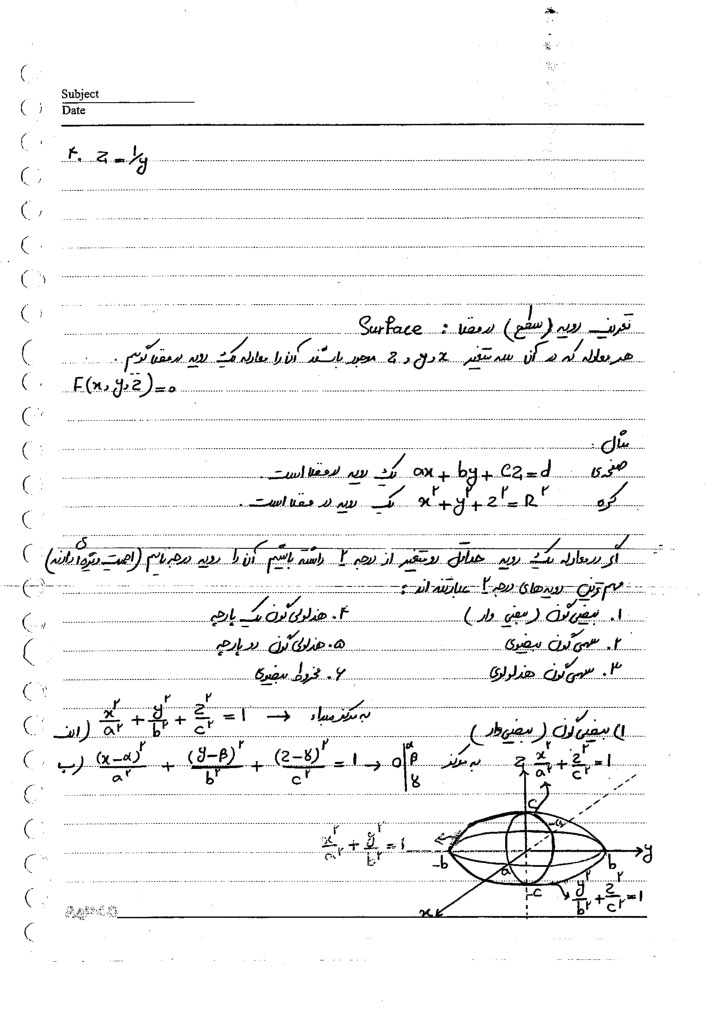 Subject
Date
۴. z = 1/y
تعریف رویه (سطح) در فضا : Surface
هر معادله که در آن سه متغیر x و y و z موجود باشند آن را معادله یک رویه در فضا گوییم.
F(x, y, z) = 0
مثال:
صفحه ax + by + cz = d یک رویه در فضا است.
کره x² + y² + z² = R² یک رویه در فضا است.
اگر در معادله یک رویه حداقل دو متغیر از درجه ۲ داشته باشیم آن را رویه درجه نامیم (اهمیت ویژه‌ای دارند)
مهم ترین رویه های درجه ۲ عبارتند اند :
۱. بیضی گون (بیضی وار) ۴. هذلولی گون یک پارچه
۲. سهمی گون بیضوی ۵. هذلولی گون دو پارچه
۳. سهمی گون هذلولوی ۶. مخروط بیضوی
۱) بیضی گون (بیضی وار)
الف) x²/a² + y²/b² + z²/c² = 1 → به مرکز مبداء
ب) (x-α)²/a² + (y-β)²/b² + (z-γ)²/c² = 1 → به مرکز O|α β γ
z x²/a² + z²/c² = 1
c
-a
x²/a² + y²/b² = 1
-b b y
a
-c
y²/b² + z²/c² = 1
x
PAPCO